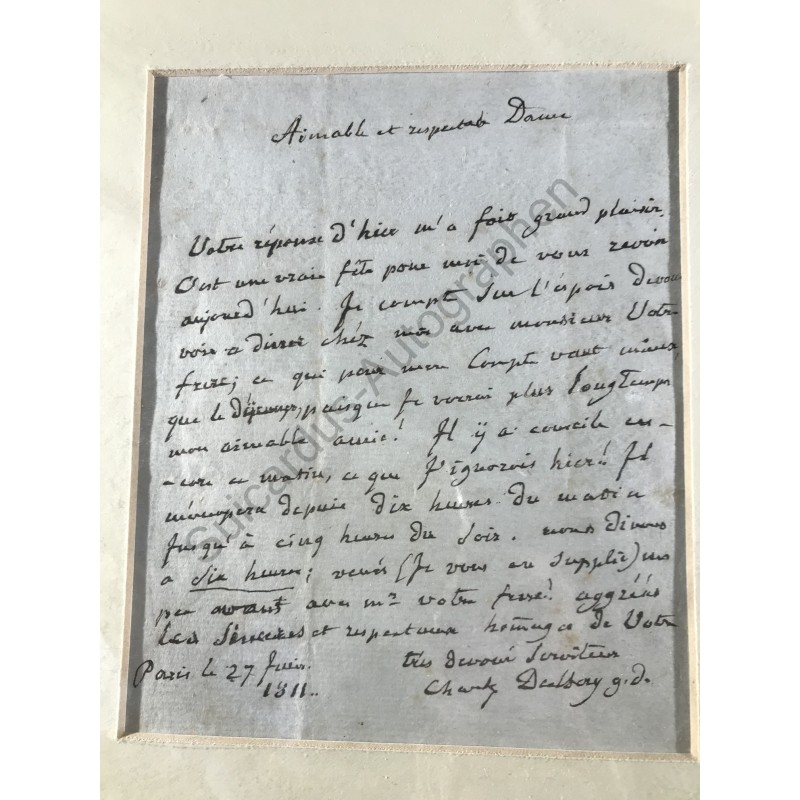 Aimable et respectab Dame
Votre réponse d'hier m'a fait grand plaisir.
C'est une vraie fête pour moi de vous revoir
aujourd'hui. Je compt Sur l'espoir de vous
voir a diner chéz moi avec monsieur Votre
frere; ce qui pour mon Compte vaut mieux,
que le déjeuner, puisque Je verrai plus longtemps
mon aimable amie! Il y a conseile en-
-core ce matin, ce que J'ignorois hier! Il
m'occupera depuis dix heures du matin
Jusqu'à cinq heures du Soir. nous dinons
a Six heures; venés (Je vous en Supplie) un
peu avant avec mr votre frere! aggréés
Les Sinceres et respectueux homage de Votre
très devoué Serviteur
Paris le 27 Juin
1811..
Charles Dalberg g.d.
Suicardus-Autographen